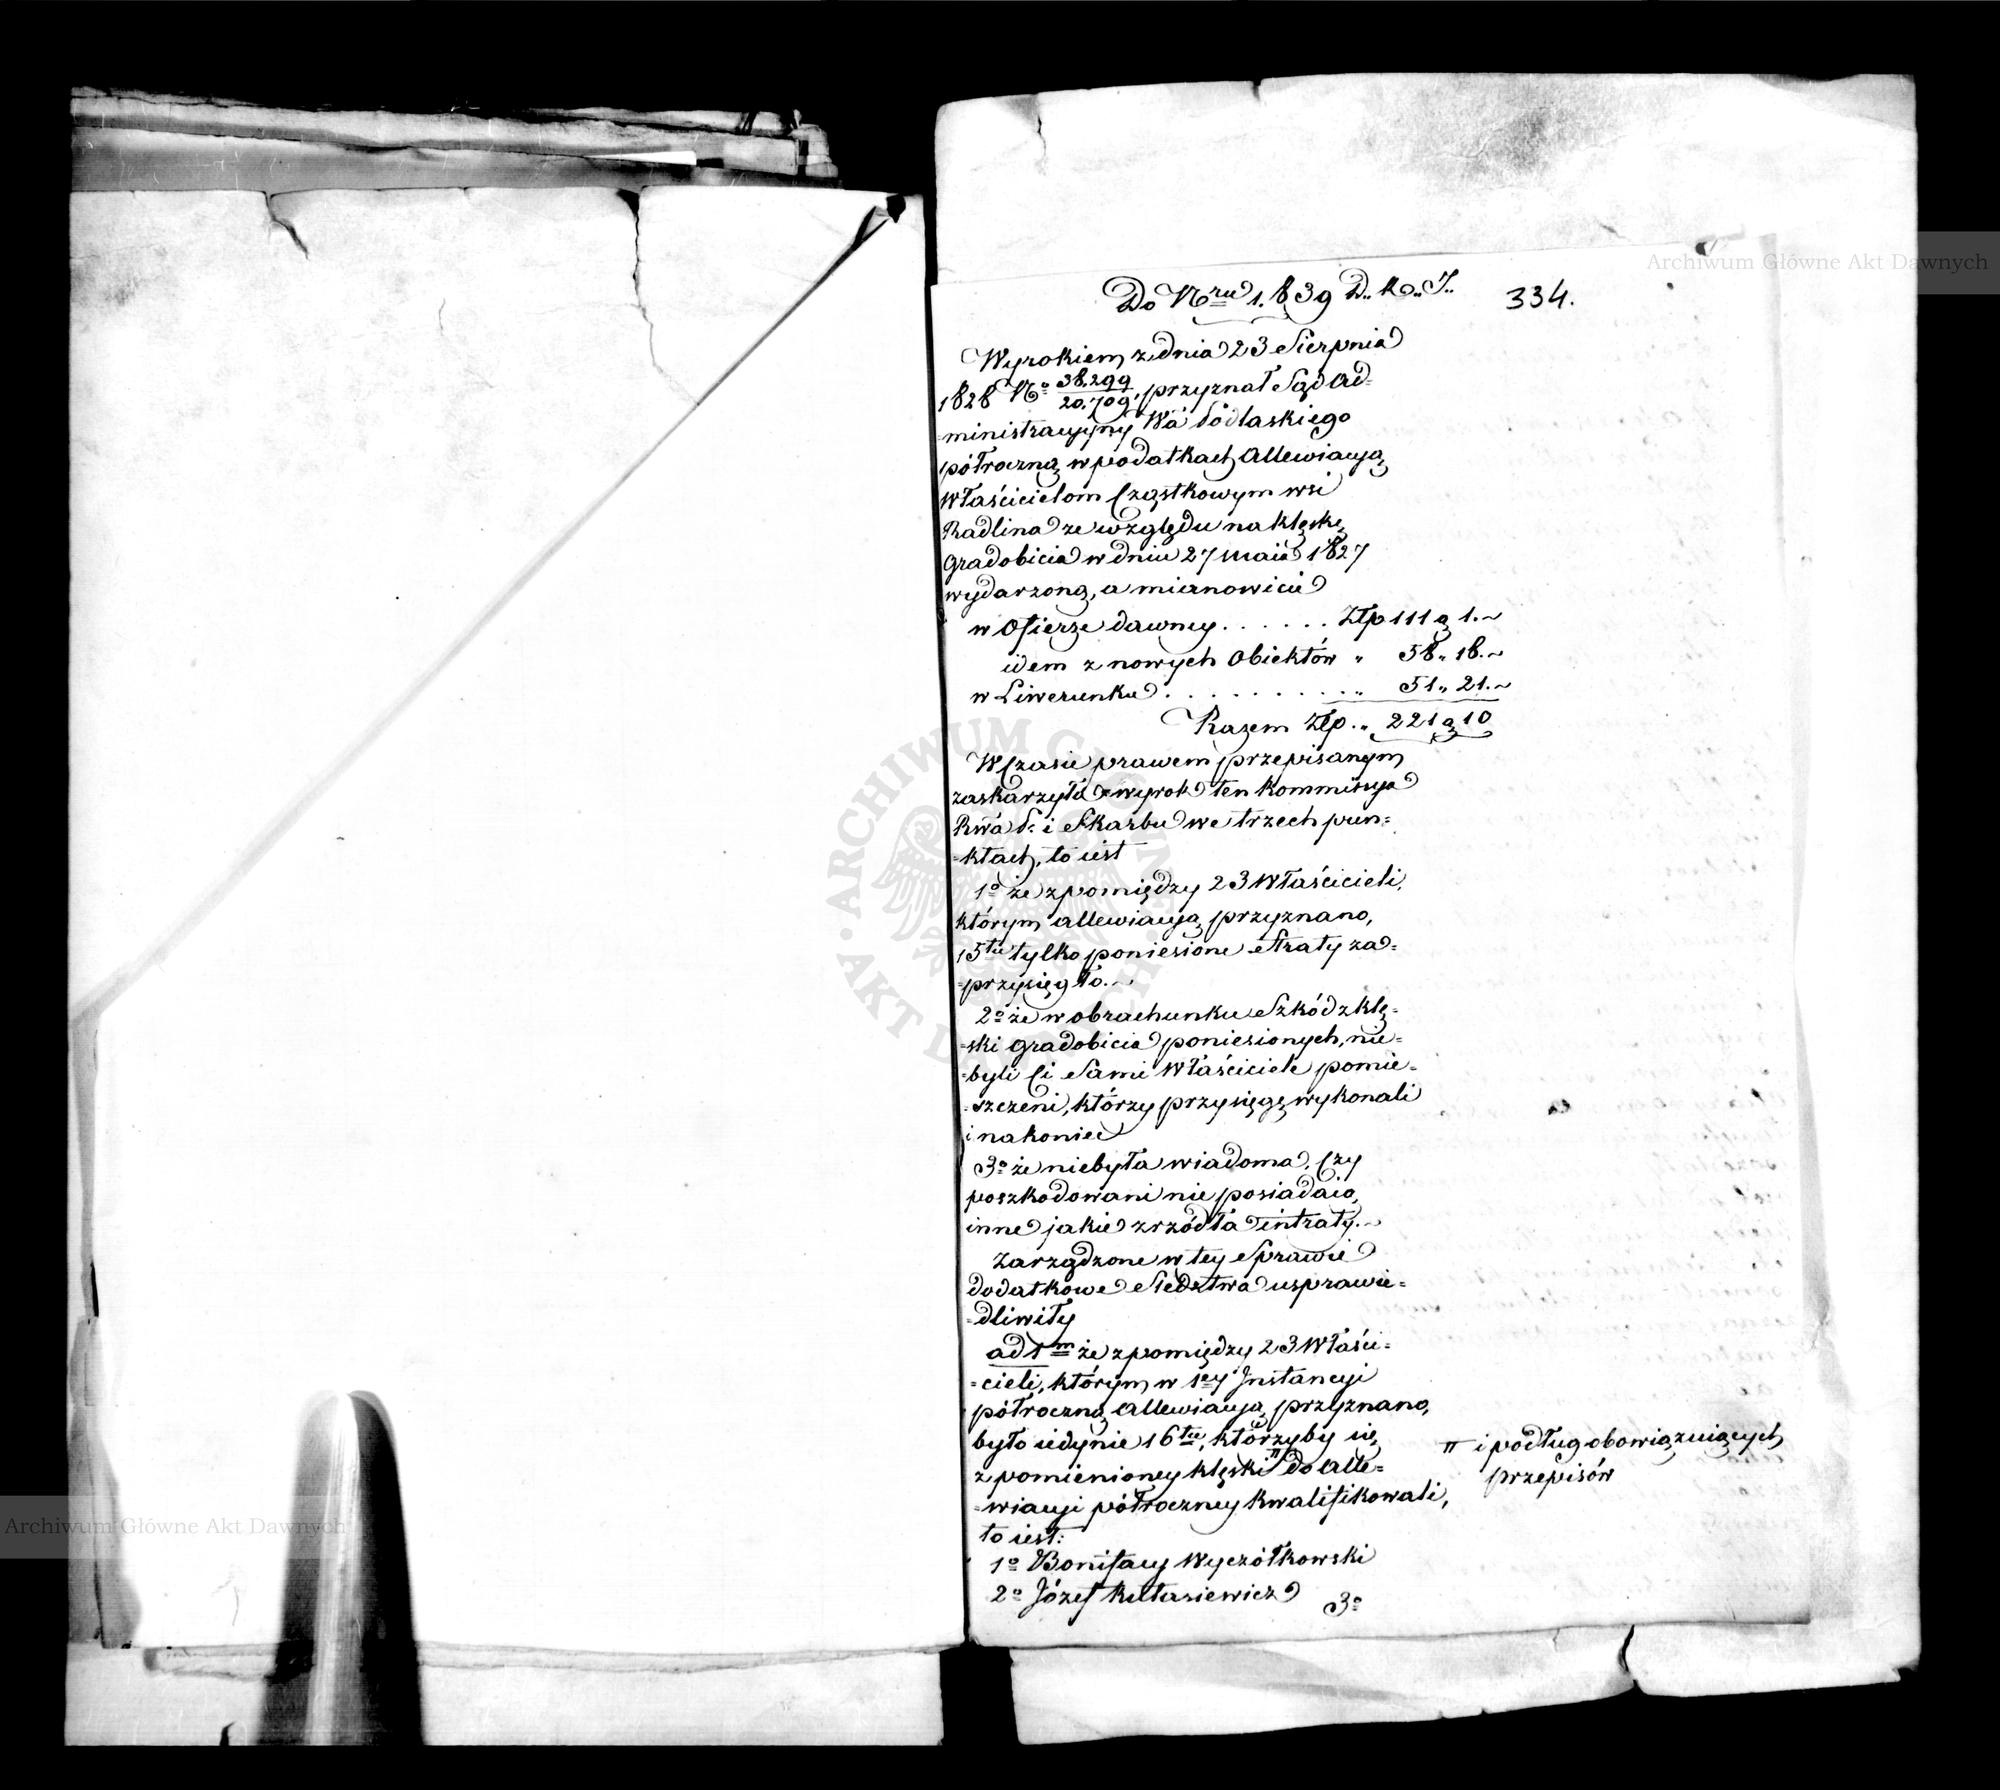 Do Nru 1.839 D.. K.. J..
334.
Wyrokiem z dnia 23 Sierpnia
1828 No 38.299/20.709, przyznał Sąd Ad=
=ministracyjny Wa Podlaskiego
półroczną w podatkach allewiacyą
Właścicielom Cząstkowym wsi
Radlina ze względu na klęskę
gradobicia w dniu 27 Maia 1827
wydarzoną, a mianowicie
w Ofierze dawney . . . . . . Złp 111 g 1.~
idem z nowych Obiektów " 58 " 18.~
w Liwerunku . . . . . . . . . . " 51 " 21.~
Razem Złp. " 221 g 10
W Czasie prawem przepisanym
zaskarżyła wyrok ten Kommissya
Rwa P. i Skarbu we trzech pun=
=ktach, to iest
1o że z pomiędzy 23 Właścicieli,
którym allewiacyą przyznano,
15tu tylko poniesione Straty za=
=przysięgło.~
2o że w obrachunku Szkód z klę=
=ski gradobicia poniesionych, nie=
=byli Ci Sami Właściciele pomie=
=szczeni, którzy przysięgę wykonali
i nakoniec
3o że niebyła wiadoma, Czy
poszkodowani nie posiadaią
inne jakie zrzódła intraty.~
Zarządzone w tey Sprawie
dodatkowe Sledztwa usprawie=
=dliwiły
ad 1m że z pomiędzy 23 Właści=
=cieli, którym w 1ey Instancyi
półroczną allewiacyą przyznano,
było iedynie 16tu, którzyby się
z pomienioney klęski " do alle=
=wiacyi półroczney kwalifikowali,
" i podług obowiązuiących
przepisów
to iest:
1o Bonifacy Wyczółkowski
2o Józef Kutasiewicz
3o
Archiwum Główne Akt Dawnych
Archiwum Główne Akt Dawnych
ARCHIWUM GŁÓWNE AKT DAWNYCH